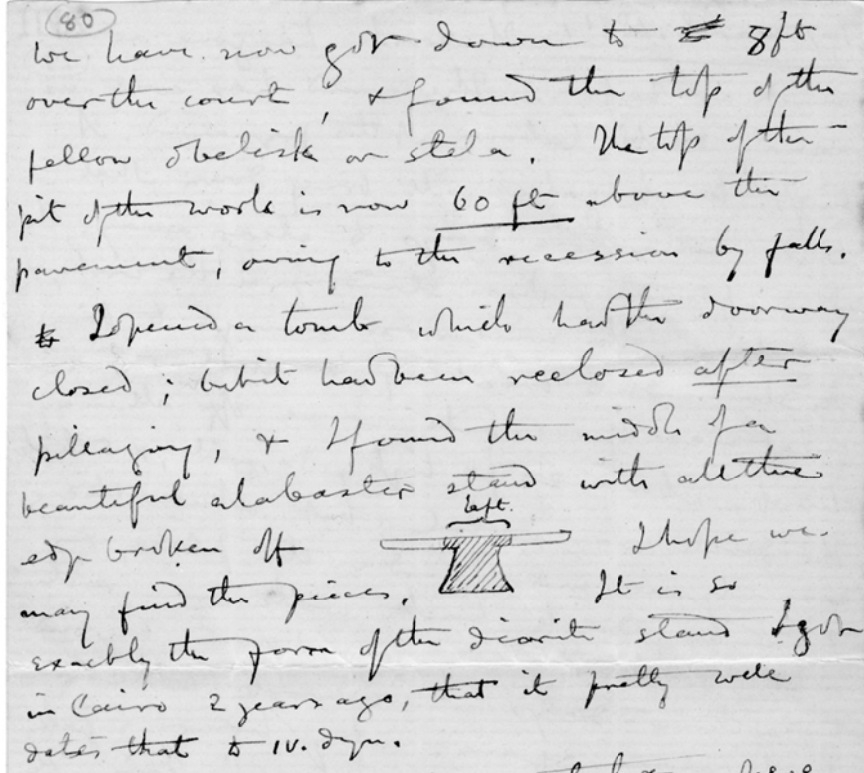 80
We have now got down to 8ft
over the court, & found the top of the
fellow obelisk or stela. The top of the
pit of the work is now 60 ft above the
pavement, owing to the recession by falls.
I opened a tomb which had the doorway
closed; but it had been reclosed after
pillaging, & I found the middle of a
beautiful alabaster stand with all the
left.
edge broken off I hope we
may find the pieces. It is so
exactly the form of the diorite stand I got
in Cairo 2 years ago, that it pretty well
dates that to IV. dyn.